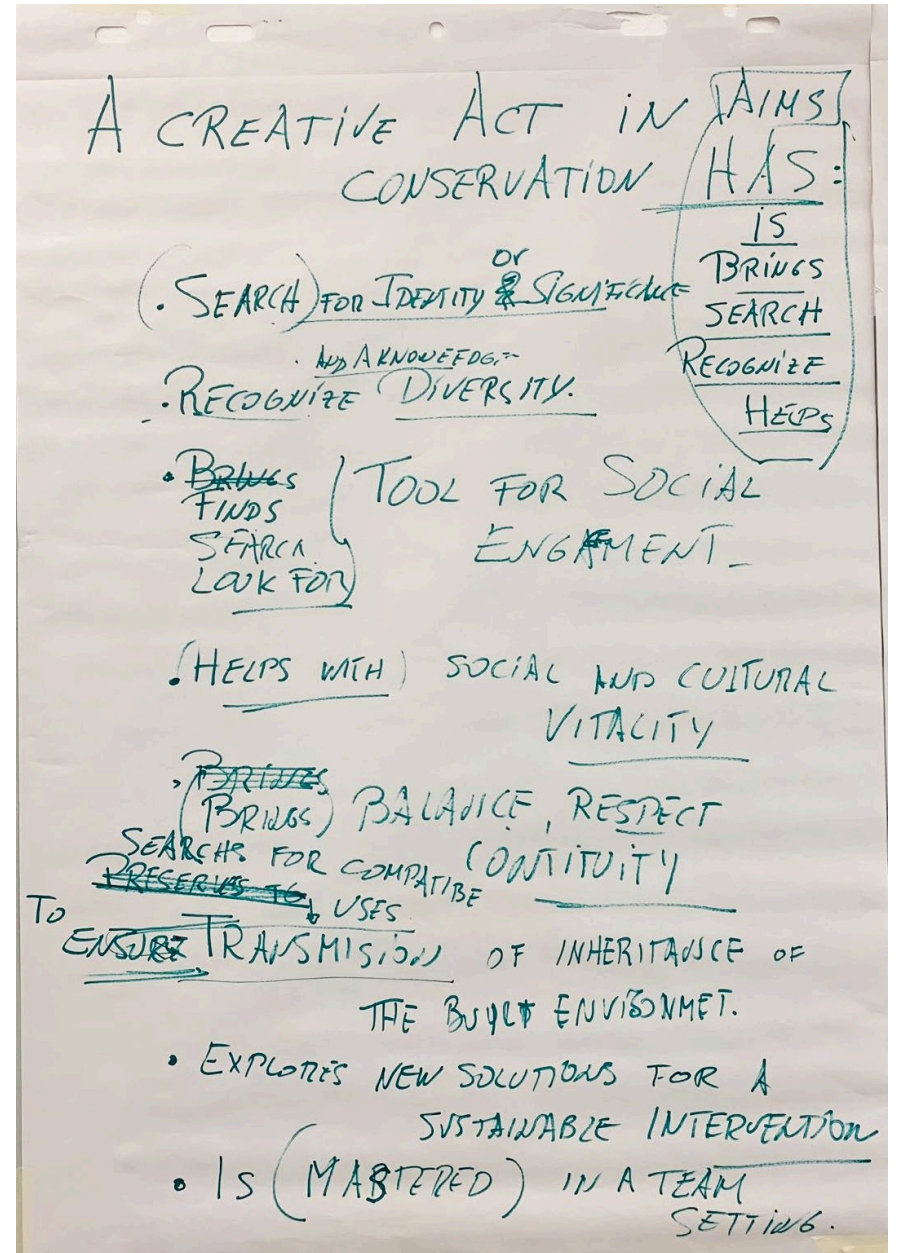 A CREATIVE ACT IN
CONSERVATION
AIMS
HAS:
IS
BRINGS
SEARCH
RECOGNIZE
HELPS
(• SEARCH) FOR IDENTITY OR SIGNIFICANCE
• RECOGNIZE AND AKNOWLEDGE DIVERSITY.
• BRINGS
FINDS
SEARCH
LOOK FOR
TOOL FOR SOCIAL
ENGAEMENT
• (HELPS WITH) SOCIAL AND CULTURAL
VITALITY
• BRINGS
(BRINGS) BALANCE, RESPECT
CONTITUITY
SEARCHS FOR COMPATIBE
PRESERVES TO USES
TO
ENSURE TRANSMISION OF INHERITANCE OF
THE BUILT ENVIRONMET.
• EXPLORES NEW SOLUTIONS FOR A
SUSTAINABLE INTERVENTION
• IS (MASTERED) IN A TEAM
SETTING.